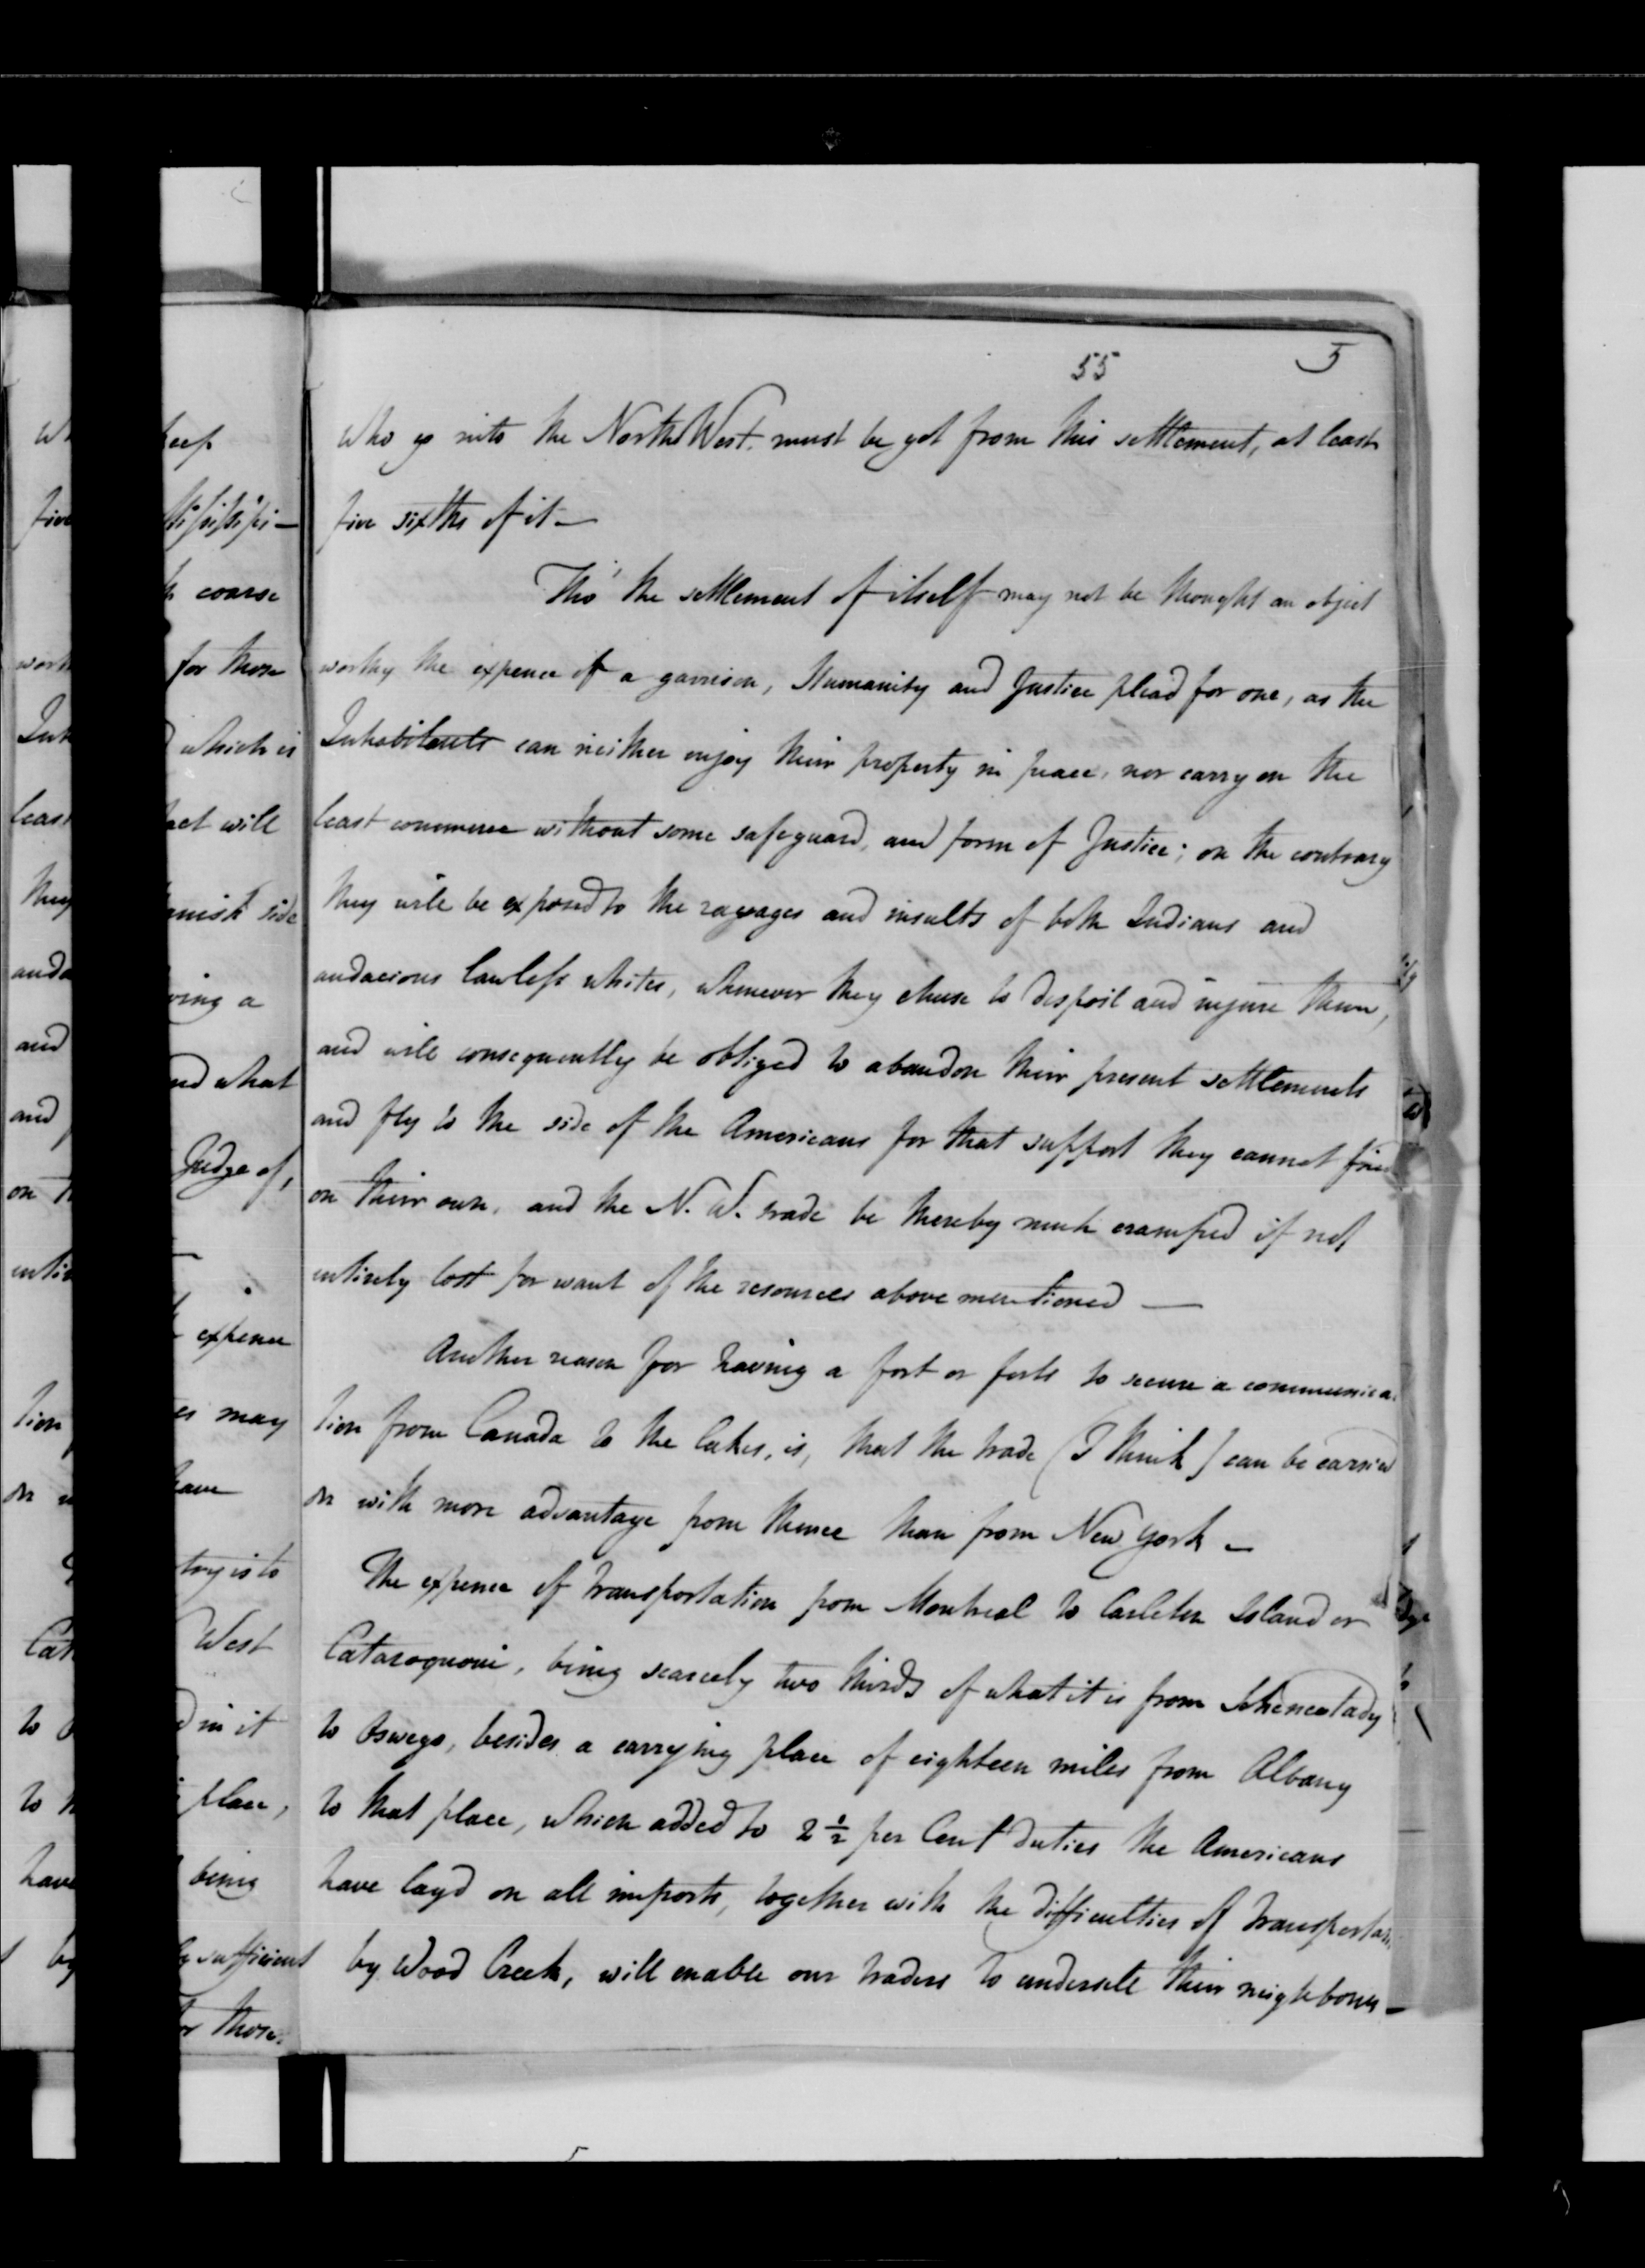 55 5
who go into the North West must be got from this settlement, at least
five sixths of it —
Tho' the settlement of itself may not be thought an object
worthy the expence of a garrison, Humanity and Justice plead for one, as the
Inhabitants can neither enjoy their property in peace, nor carry on the
least commerce without some safeguard, and form of Justice; on the contrary
they will be exposed to the ravages and insults of both Indians and
audacious lawless whites, whenever they chuse to despoil and injure them,
and will consequently be obliged to abandon their present settlements
and fly to the side of the Americans for that support they cannot find
on their own, and the N. W. trade be thereby much cramped if not
entirely lost for want of the resources above mentioned —
Another reason for having a fort or forts to secure a communica-
tion from Canada to the lakes, is, that the trade (I think) can be carried
on with more advantage from thence than from New York —
The expence of transportation from Montreal to Carleton Island or
Cataroquoui, being scarcely two thirds of what it is from Schenectady
to Oswego, besides a carrying place of eighteen miles from Albany
to that place, which added to 2 1/2 per Cent duties the Americans
have layd on all imports, together with the difficulties of transportation
by Wood Creek, will enable our traders to undersell their neighbours —